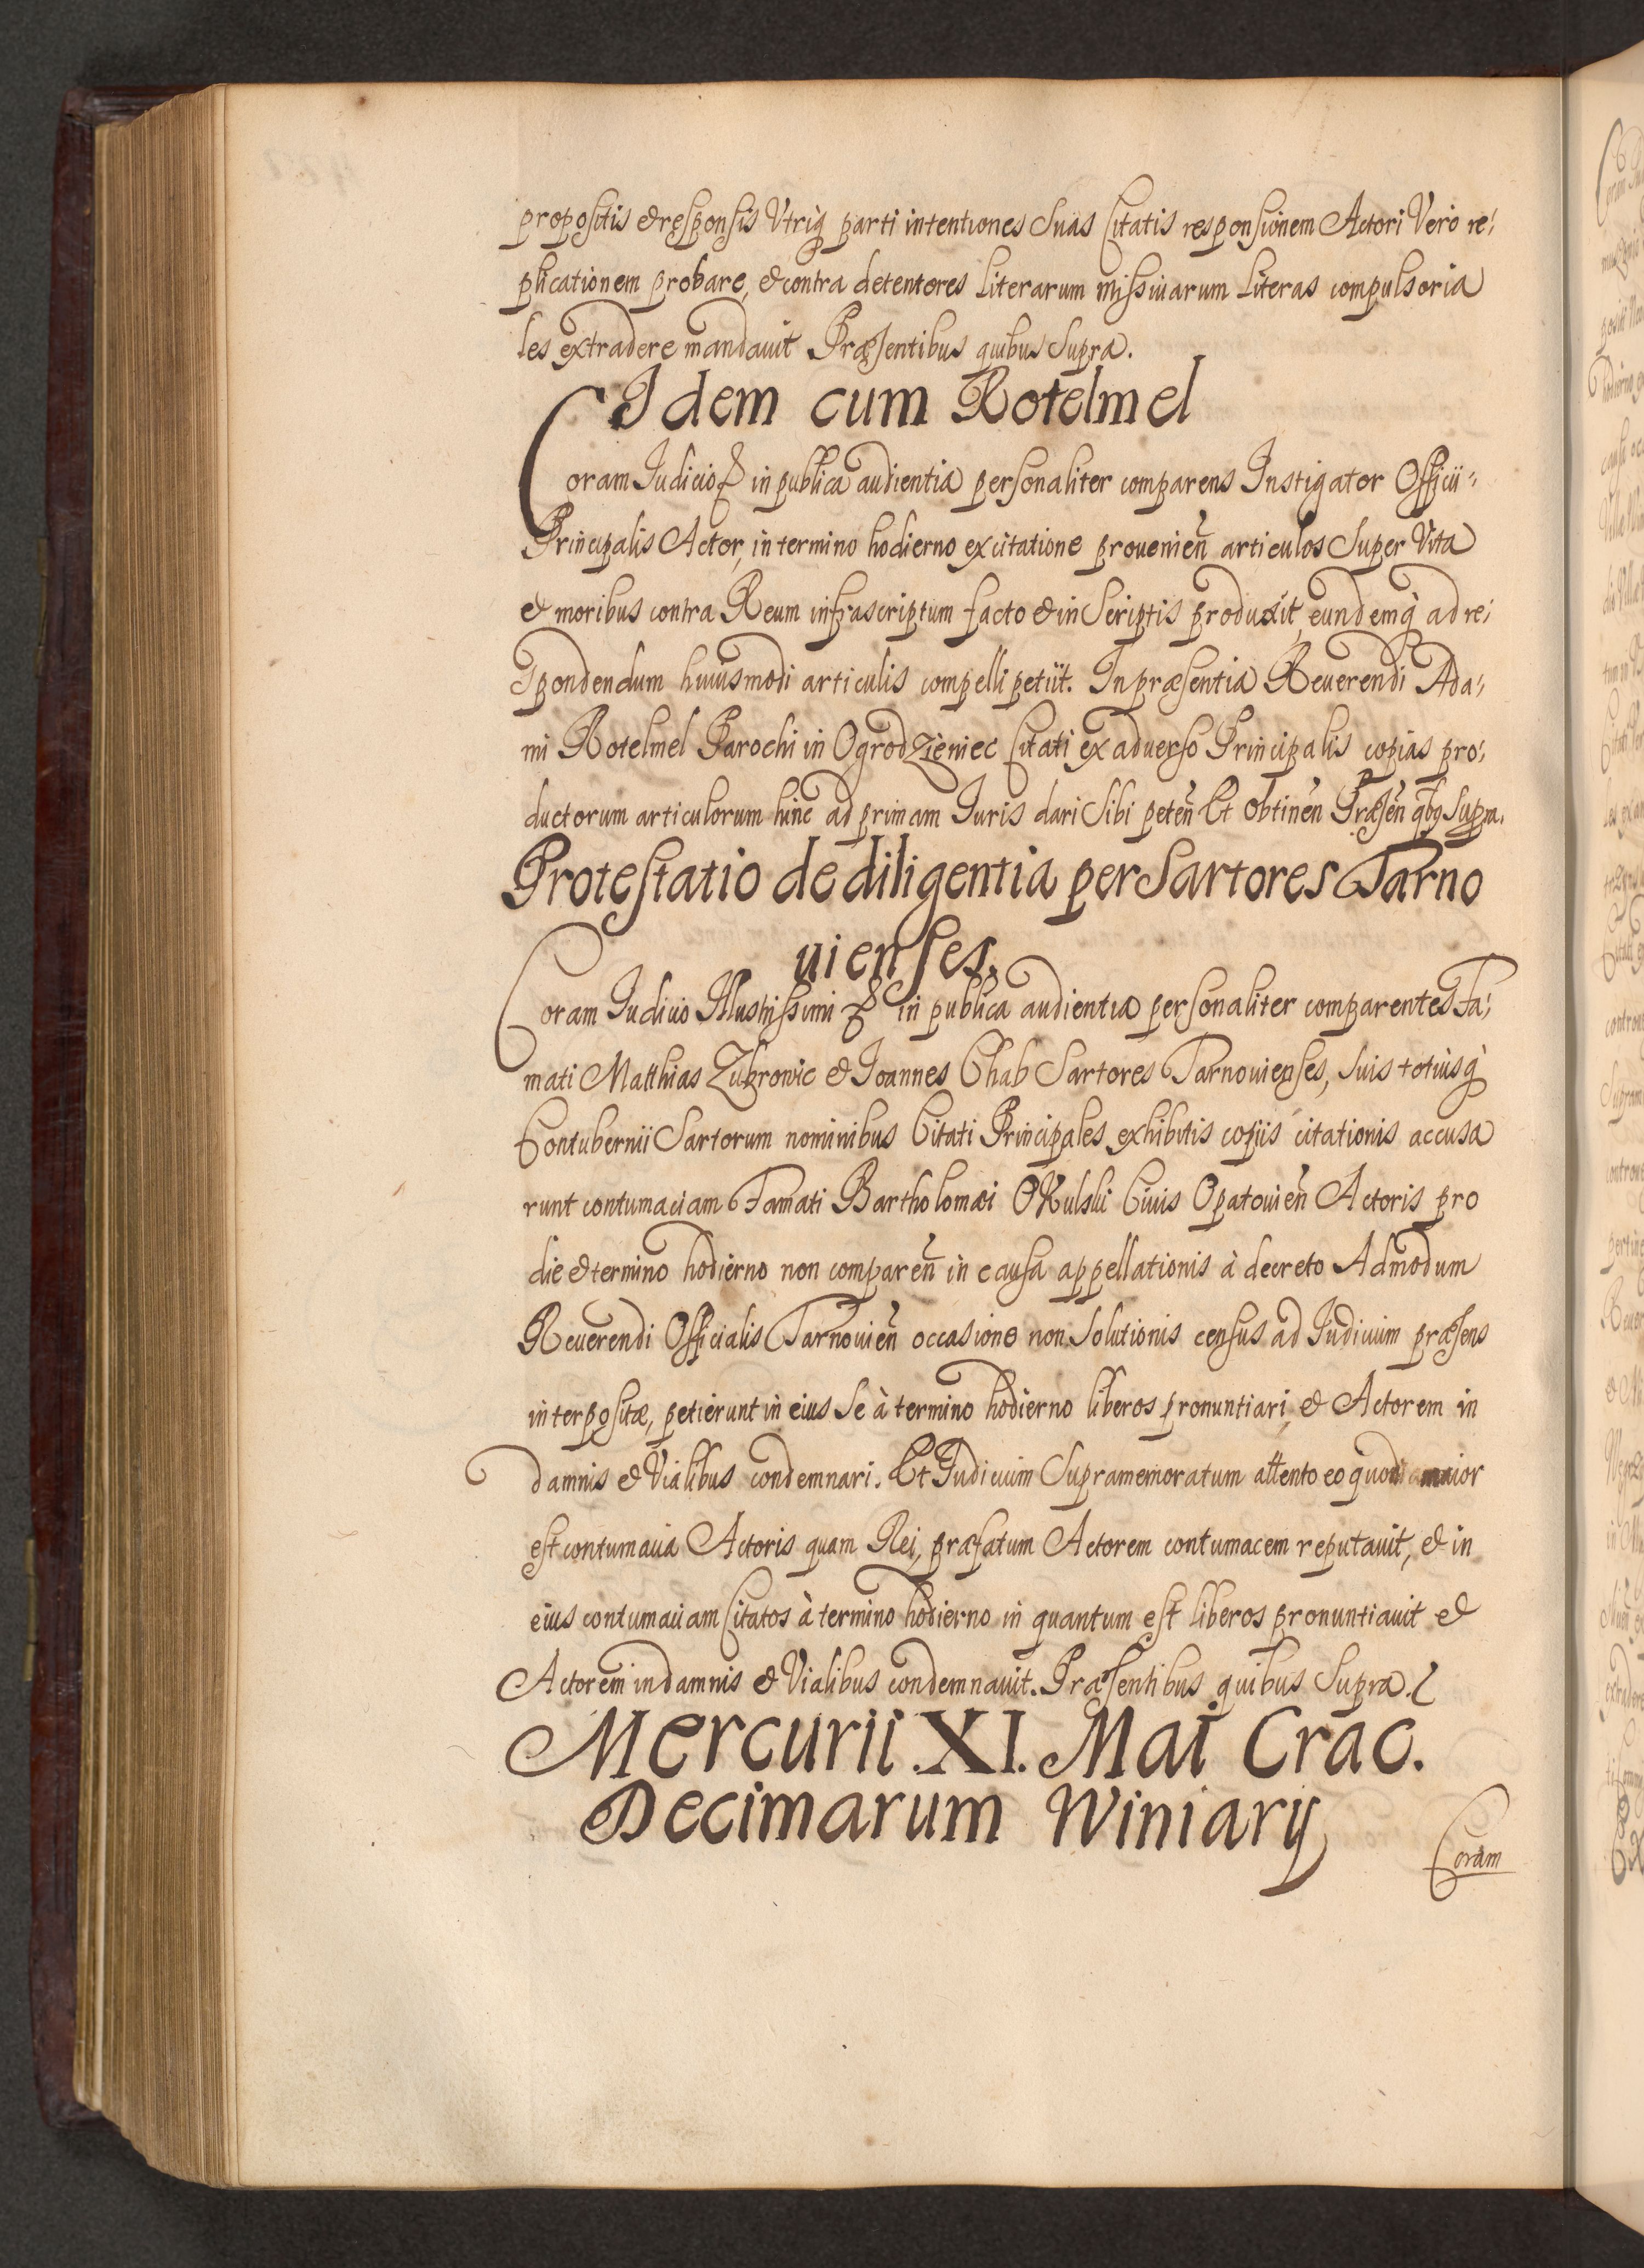 propositis et responsis Vtriq parti intentiones Suas Citatis responsionem Actori Vero re:
plicationem probare, et contra detentores Literarum missiuarum Literas compulsoria
les extradere mandauit Præsentibus quibus Supra.
Idem cum Rotelmel
Coram Judicio & in publica audientia personaliter comparens Instigator Officii:
Principalis Actor, in termino hodierno ex citatione prouenień articulos Super Vita
et moribus contra Reum infrascriptum facto et in Scriptis produxit, eundemq ad re:
Spondendum huiusmodi articulis compelli petiit. In præsentia Reuerendi Ada:
mi Rotelmel Parochi in Ogrodzieniec Citati ex aduerso Principalis copias pro:
ductorum articulorum hinc ad primam Juris dari Sibi peteń Et Obtineń Præseń qbq Supra.
Protestatio de diligentia per Sartores Tarno
uienses.
Coram Judicio Illustrissimi & in publica audientia personaliter comparentes Fa:
mati Matthias Zubrowic et Joannes Chab Sartores Tarnouienses, Suis totiusq
Contubernii Sartorum nominibus Citati Principales exhibitis copiis citationis accusa
runt contumaciam Famati Bartholomæi OKulski Ciuis Opatouień Actoris pro
die et termino hodierno non compareń in causa appellationis à decreto Admodum
Reuerendi Officialis Tarnouień occasione non Solutionis census ad Judicium præsens
interpositæ, petierunt in eius Se à termino hodierno liberos pronuntiari, et Actorem in
damnis et Vialibus condemnari. Et Judicium Supramemoratum attento eo quod maior
est contumacia Actoris quam Rei, præfatum Actorem contumacem reputauit, et in
eius contumaciam Citatos à termino hodierno in quantum est liberos pronuntiauit et
Actorem in damnis et Vialibus condemnauit. Præsentibus quibus Supra.
Mercurii .XI. Mai Crac.
Decimarum Winiary
Coram